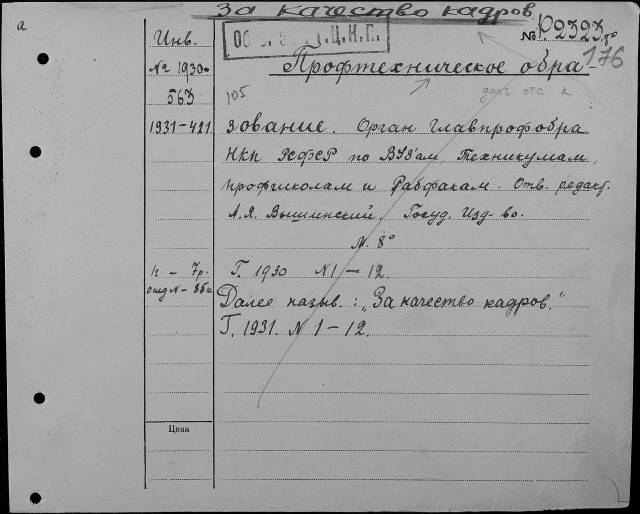 а
За качество кадров
Инв.
№ Ю2323 го
176
№ 1930
Профтехническое обра-
563
105
1931-421.
зование. Орган Главпрофобра
НКП РСФСР по ВУЗ'ам Техникумам,
профшколам и Рабфакам. Отв. редакт.
А.Я. Вышинский. Госуд. Изд-во.
М. 8°
Г. 1930 N 1-12.
Далее назыв.: „За качество кадров."
Г. 1931. N 1-12.
Цена